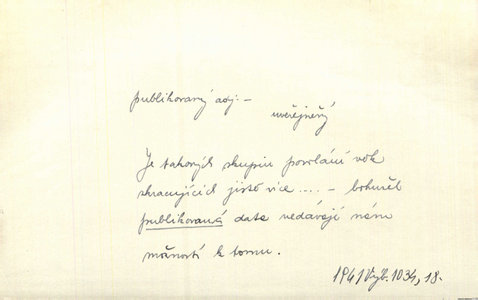 publikovaný adj. –
uveřejněný
Je takových skupin povolání věk
zkracujících jistě více .... – bohužel
publikovaná data nedávají nám
možnosti k tomu.
1941 Vyb. 1034, 18.